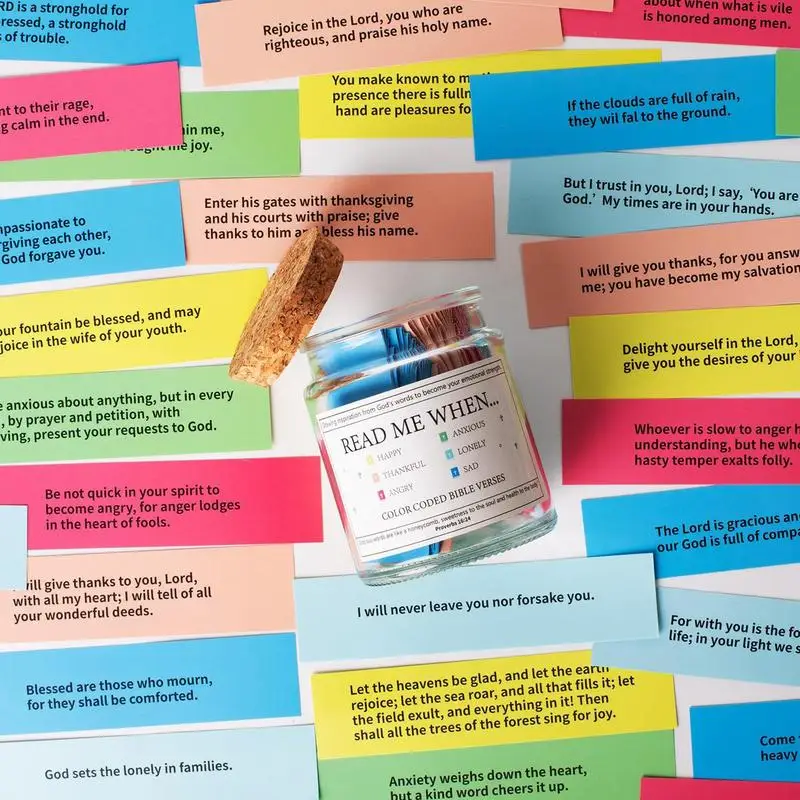 RD is a stronghold for
pressed, a stronghold
s of trouble.
Rejoice in the Lord, you who are
righteous, and praise his holy name.
about when what is vile
is honored among men.
nt to their rage,
g calm in the end.
in me,
ught me joy.
You make known to m
presence there is fulln
hand are pleasures fo
If the clouds are full of rain,
they wil fal to the ground.
But I trust in you, Lord; I say, 'You are
God.' My times are in your hands.
Enter his gates with thanksgiving
and his courts with praise; give
thanks to him and bless his name.
mpassionate to
rgiving each other,
God forgave you.
I will give you thanks, for you answ
me; you have become my salvation
our fountain be blessed, and may
joice in the wife of your youth.
Delight yourself in the Lord,
give you the desires of your
e anxious about anything, but in every
, by prayer and petition, with
ving, present your requests to God.
Whoever is slow to anger h
understanding, but he who
hasty temper exalts folly.
Drawing inspiration from God's words to become your emotional strength
READ ME WHEN...
HAPPY
THANKFUL
ANGRY
ANXIOUS
LONELY
SAD
COLOR CODED BIBLE VERSES
Gracious words are like a honeycomb, sweetness to the soul and health to the body
Proverbs 16:24
Be not quick in your spirit to
become angry, for anger lodges
in the heart of fools.
The Lord is gracious an
our God is full of compa
will give thanks to you, Lord,
with all my heart; I will tell of all
your wonderful deeds.
I will never leave you nor forsake you.
For with you is the fo
life; in your light we s
Blessed are those who mourn,
for they shall be comforted.
Let the heavens be glad, and let the earth
rejoice; let the sea roar, and all that fills it; let
the field exult, and everything in it! Then
shall all the trees of the forest sing for joy.
Come
heavy
God sets the lonely in families.
Anxiety weighs down the heart,
but a kind word cheers it up.